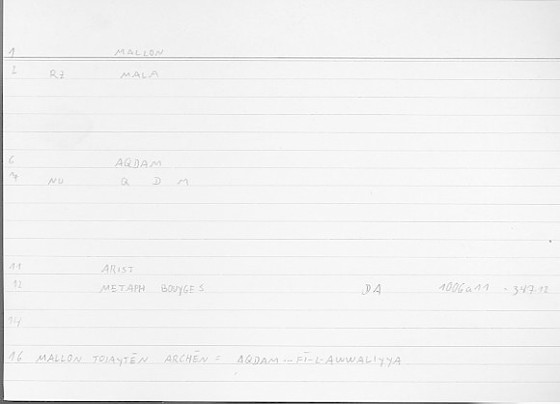 1 MALLON
2 RZ MALA
6 AQDAM
7 NU Q D M
11 ARIST
12 METAPH BOUYGES DA 1006a11 - 347.12
14
16 MALLON TOIAYTĒN ARCHĒN = AQDAM — FĪ-L-AWWALIYYA